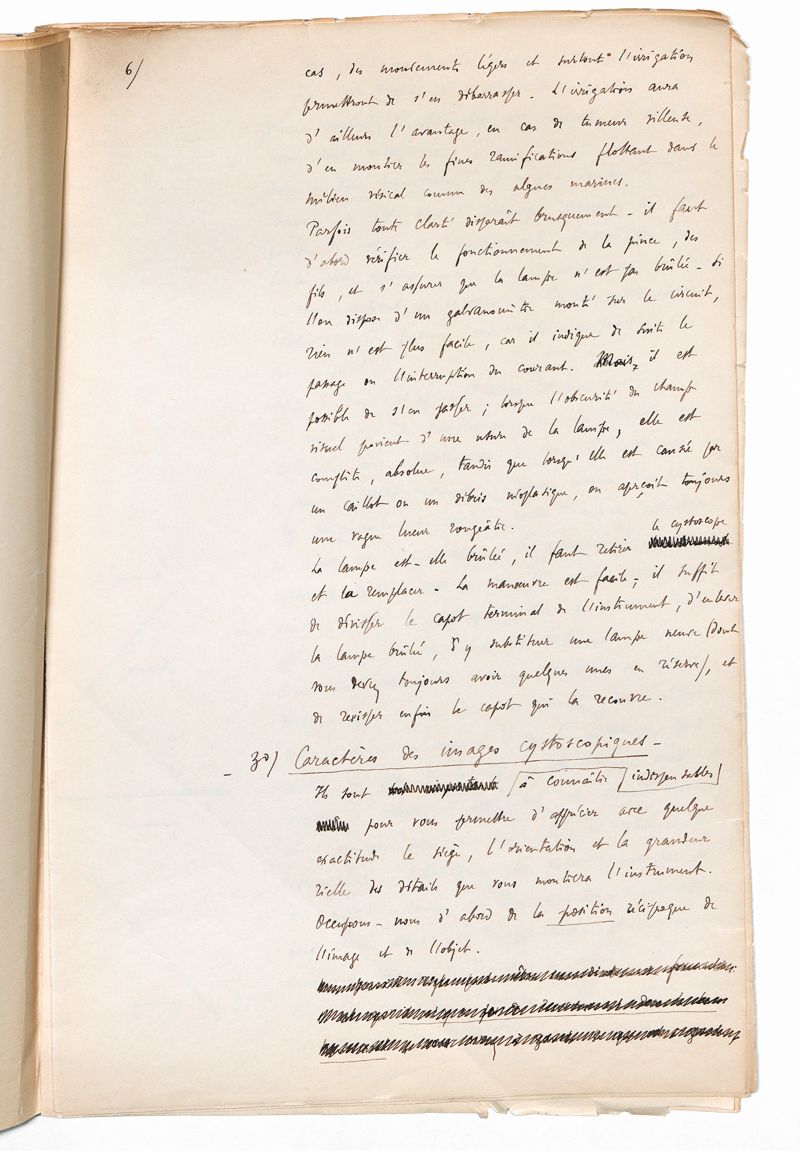 6/
cas, des mouvements légers et surtout l'irrigation
permettront de s'en débarrasser. L'irrigation aura
d'ailleurs l'avantage, en cas de tumeur villeuse,
d'en montrer les fines ramifications flottant dans le
milieu vésical comme des algues marines.
Parfois toute clarté disparaît brusquement - il faut
d'abord vérifier le fonctionnement de la pince, des
fils, et s'assurer que la lampe n'est pas brûlée - Si
l'on dispose d'un galvanomètre monté sur le circuit,
rien n'est plus facile, car il indique de suite le
passage ou l'interruption du courant. Mais, il est
possible de s'en passer ; lorsque l'obscurité du champ
visuel provient d'une usure de la lampe, elle est
complète, absolue, tandis que lorsqu'elle est causée par
un caillot ou un débris néoplasique, on aperçoit toujours
une vague lueur rougeâtre.
La lampe est-elle brûlée, il faut retirer le cystoscope
et la remplacer - La manœuvre est facile ; il suffit
de dévisser le capot terminal de l'instrument, d'enlever
la lampe brûlée, d'y substituer une lampe neuve (dont
vous devez toujours avoir quelques unes en réserve), et
de revisser enfin le capot qui la recouvre.
- 3º) Caractères des images cystoscopiques -
Ils sont à connaître indispensables
pour vous permettre d'apprécier avec quelque
exactitude le siège, l'orientation et la grandeur
réelle des détails que vous montrera l'instrument.
Occupons-nous d'abord de la position réciproque de
l'image et de l'objet.